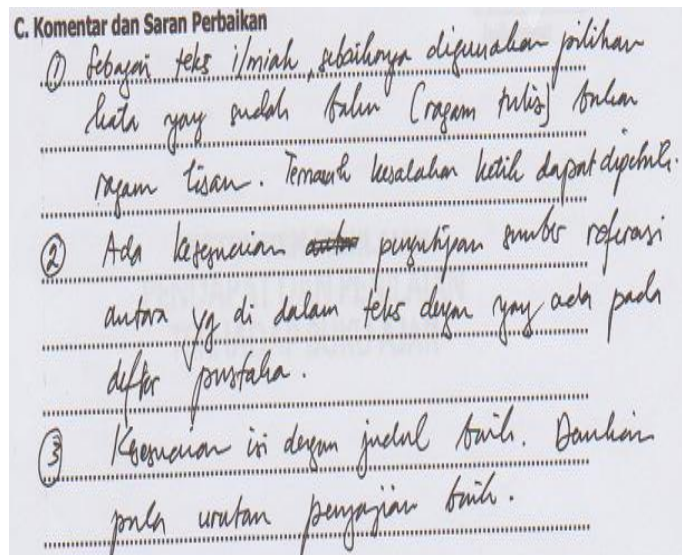 C. Komentar dan Saran Perbaikan
① Sebagai teks ilmiah, sebaiknya digunakan pilihan
kata yang sudah baku (ragam tulis) bukan
ragam lisan. Termasuk kesalahan ketik dapat diperbaiki.
② Ada kesesuaian pengutipan sumber referensi
antara yg di dalam teks dengan yang ada pada
daftar pustaka.
③ Kesesuaian isi dengan judul baik. Demikian
pula urutan penyajian baik.